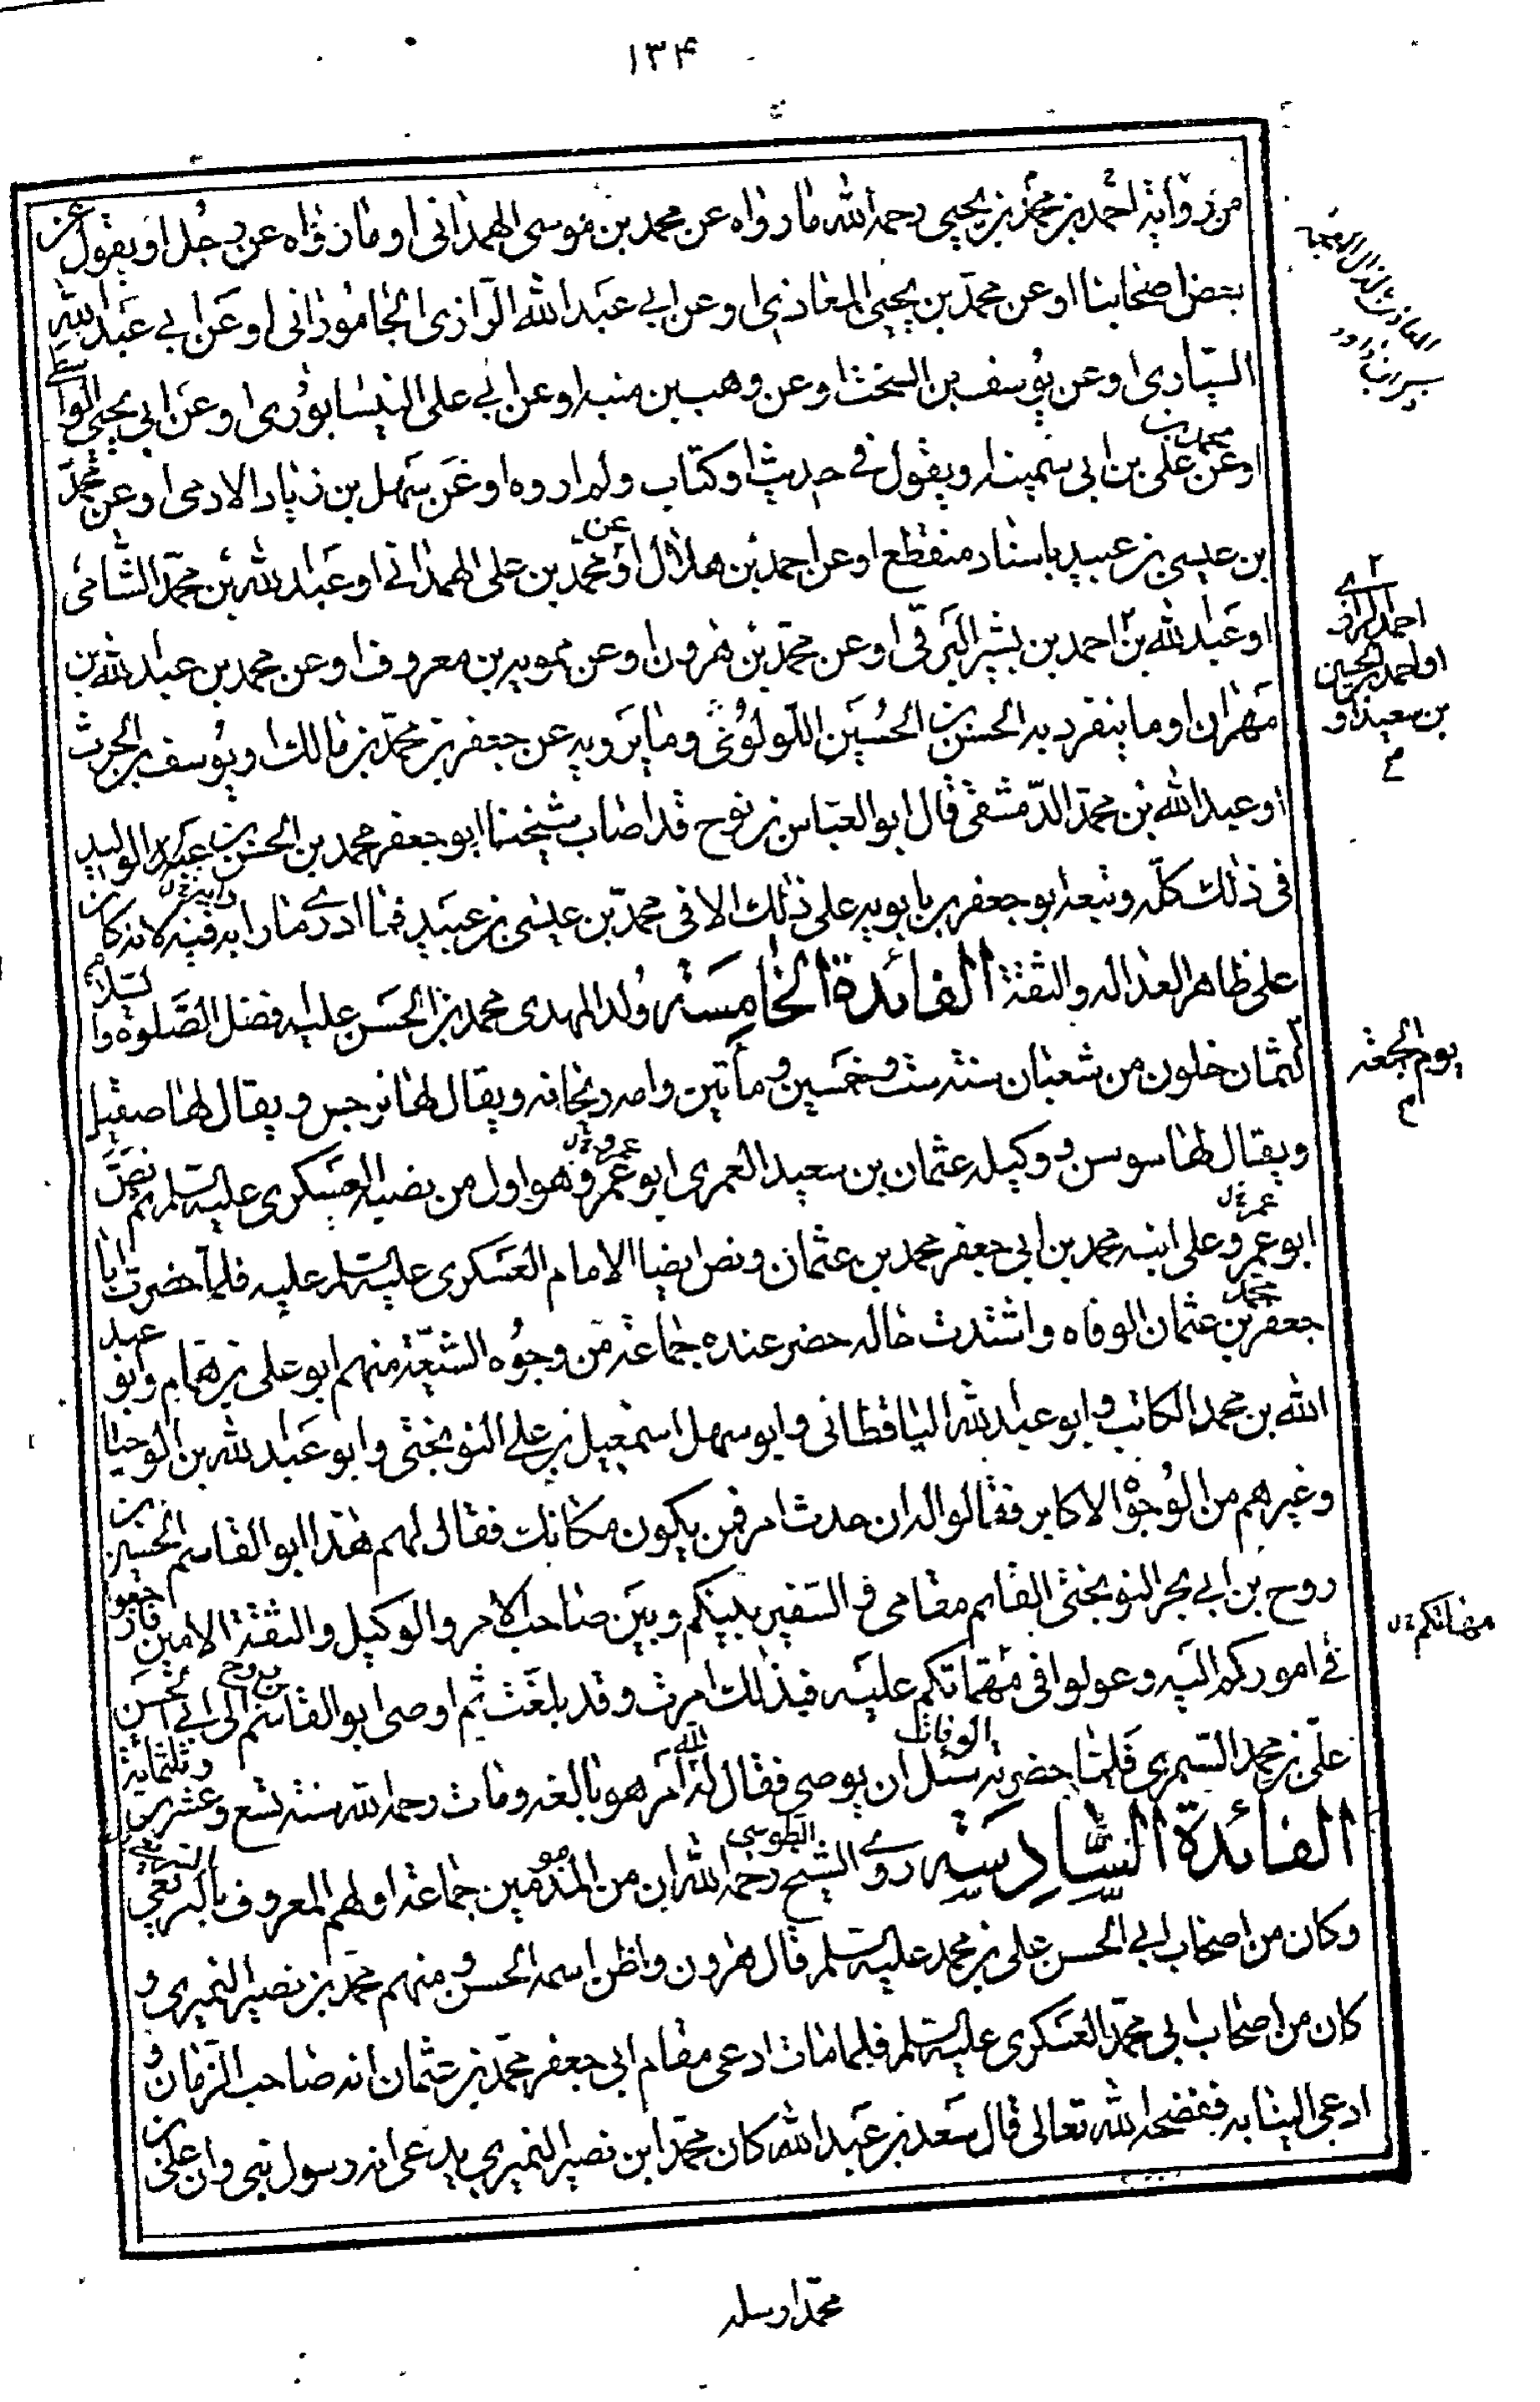 ١٣۴
من رواية احمد بن محمد بن يحيى رحمه الله ما رواه عن محمد بن موسى الهمدانى او ما رواه عن رجل او يقول عن
بعض اصحابنا او عن محمد بن يحيى المعاذى او عن ابي عبد الله الرازى الجامورانى او عن ابي عبد الله
السيارى او عن يوسف بن السخت او عن وهب بن منبه او عن ابي على النيسابورى او عن ابي يحيى الواسطے
او عن محمد بن على بن ابي سمينه او يقول فے حديث او كتاب ولم اروه او عن سهل بن زياد الادمى او عن محمد
بن عيسى بن عبيد باسناد منقطع او عن احمد بن هلال او عن محمد بن على الهمدانے او عبد الله بن محمد الشامى
او عبد الله بن احمد بن بشير البرقى او عن محمد بن هرون او عن ممويه بن معروف او عن محمد بن عبد الله بن
مهران او ما ينفرد به الحسن بن الحسين اللولوئى وما يرويه عن جعفر بن محمد بن مالك او يوسف بن الحرث
او عبد الله بن محمد الدمشقى قال ابو العباس بن نوح قد اصاب شيخنا ابو جعفر محمد بن الحسن بن الوليد
فى ذلك كله وتبعه ابو جعفر بن بابويه على ذلك الا فى محمد بن عيسى بن عبيد فما ادرے ما رابه فيه لانه كان
على ظاهر العدالة والثقة الفائدة الخامسة ولد المهدى محمد بن الحسن عليه افضل الصلوة والسلام
لثمان خلون من شعبان سنة ست وخمسين ومأتين وامه ريحانه ويقال لها نرجس ويقال لها صقيل
ويقال لها سوسن ووكيله عثمان بن سعيد العمرى ابو عمرو وهو اول من نصبه العسكرى عليه السلم ثم نص
ابو عمرو على ابنه محمد بن ابى جعفر محمد بن عثمان ونص ايضا الامام العسكرى عليه السلم عليه فلما حضرت ابا
جعفر محمد بن عثمان الوفاه واشتدت حاله حضر عنده جماعة من وجوه الشيعة منهم ابو على بن همام وابو عبد
الله بن محمد الكاتب وابو عبد الله الباقطانى وابو سهل اسمعيل بن علے النوبختى وابو عبد الله بن الوجنا
وغيرهم من الوجوه الاكابر فقالوا له ان حدث امر فمن يكون مكانك فقال لهم هذا ابو القاسم الحسين بن
روح بن ابي بحر النوبختى القائم مقامى فى السفير بينكم وبين صاحب الامر والوكيل والثقة الامين فارجعوا
فے اموركم اليه وعولوا فى مهماتكم عليه فبذلك امرت وقد بلغت ثم اوصى ابو القاسم بن روح الى ابے الحسن
على بن محمد السمرى فلما حضرته الوفاة سئل ان يوصى فقال لله امر هو بالغه ومات رحمه الله سنة تسع وعشرين وثلثمائة
الفائدة السادسة روے الشيخ الطوسى رحمه الله ان من المذمومين جماعة اولهم المعروف بالشريعى
وكان من اصحاب ابى الحسن على بن محمد عليه السلم قال هرون واظن اسمه الحسن ومنهم محمد بن نصير النميرى و
كان من اصحاب ابى محمد العسكرى عليه السلم فلما مات ادعى مقام ابى جعفر محمد بن عثمان انه صاحب الزمان و
ادعى البابية ففضحه الله تعالى قال سعد بن عبد الله كان محمد ابن نصير النميرى يدعى انه رسول نبى وان على بن
احمد الرازے
او احمد بن الحسين
بن سعيد او
م
يوم الجمعة
م
مهماتكم خ ل
محمد ارسله